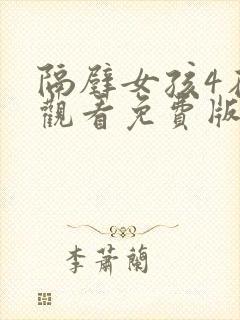 隔壁女孩4在
觀看免費版
李蕭蘭